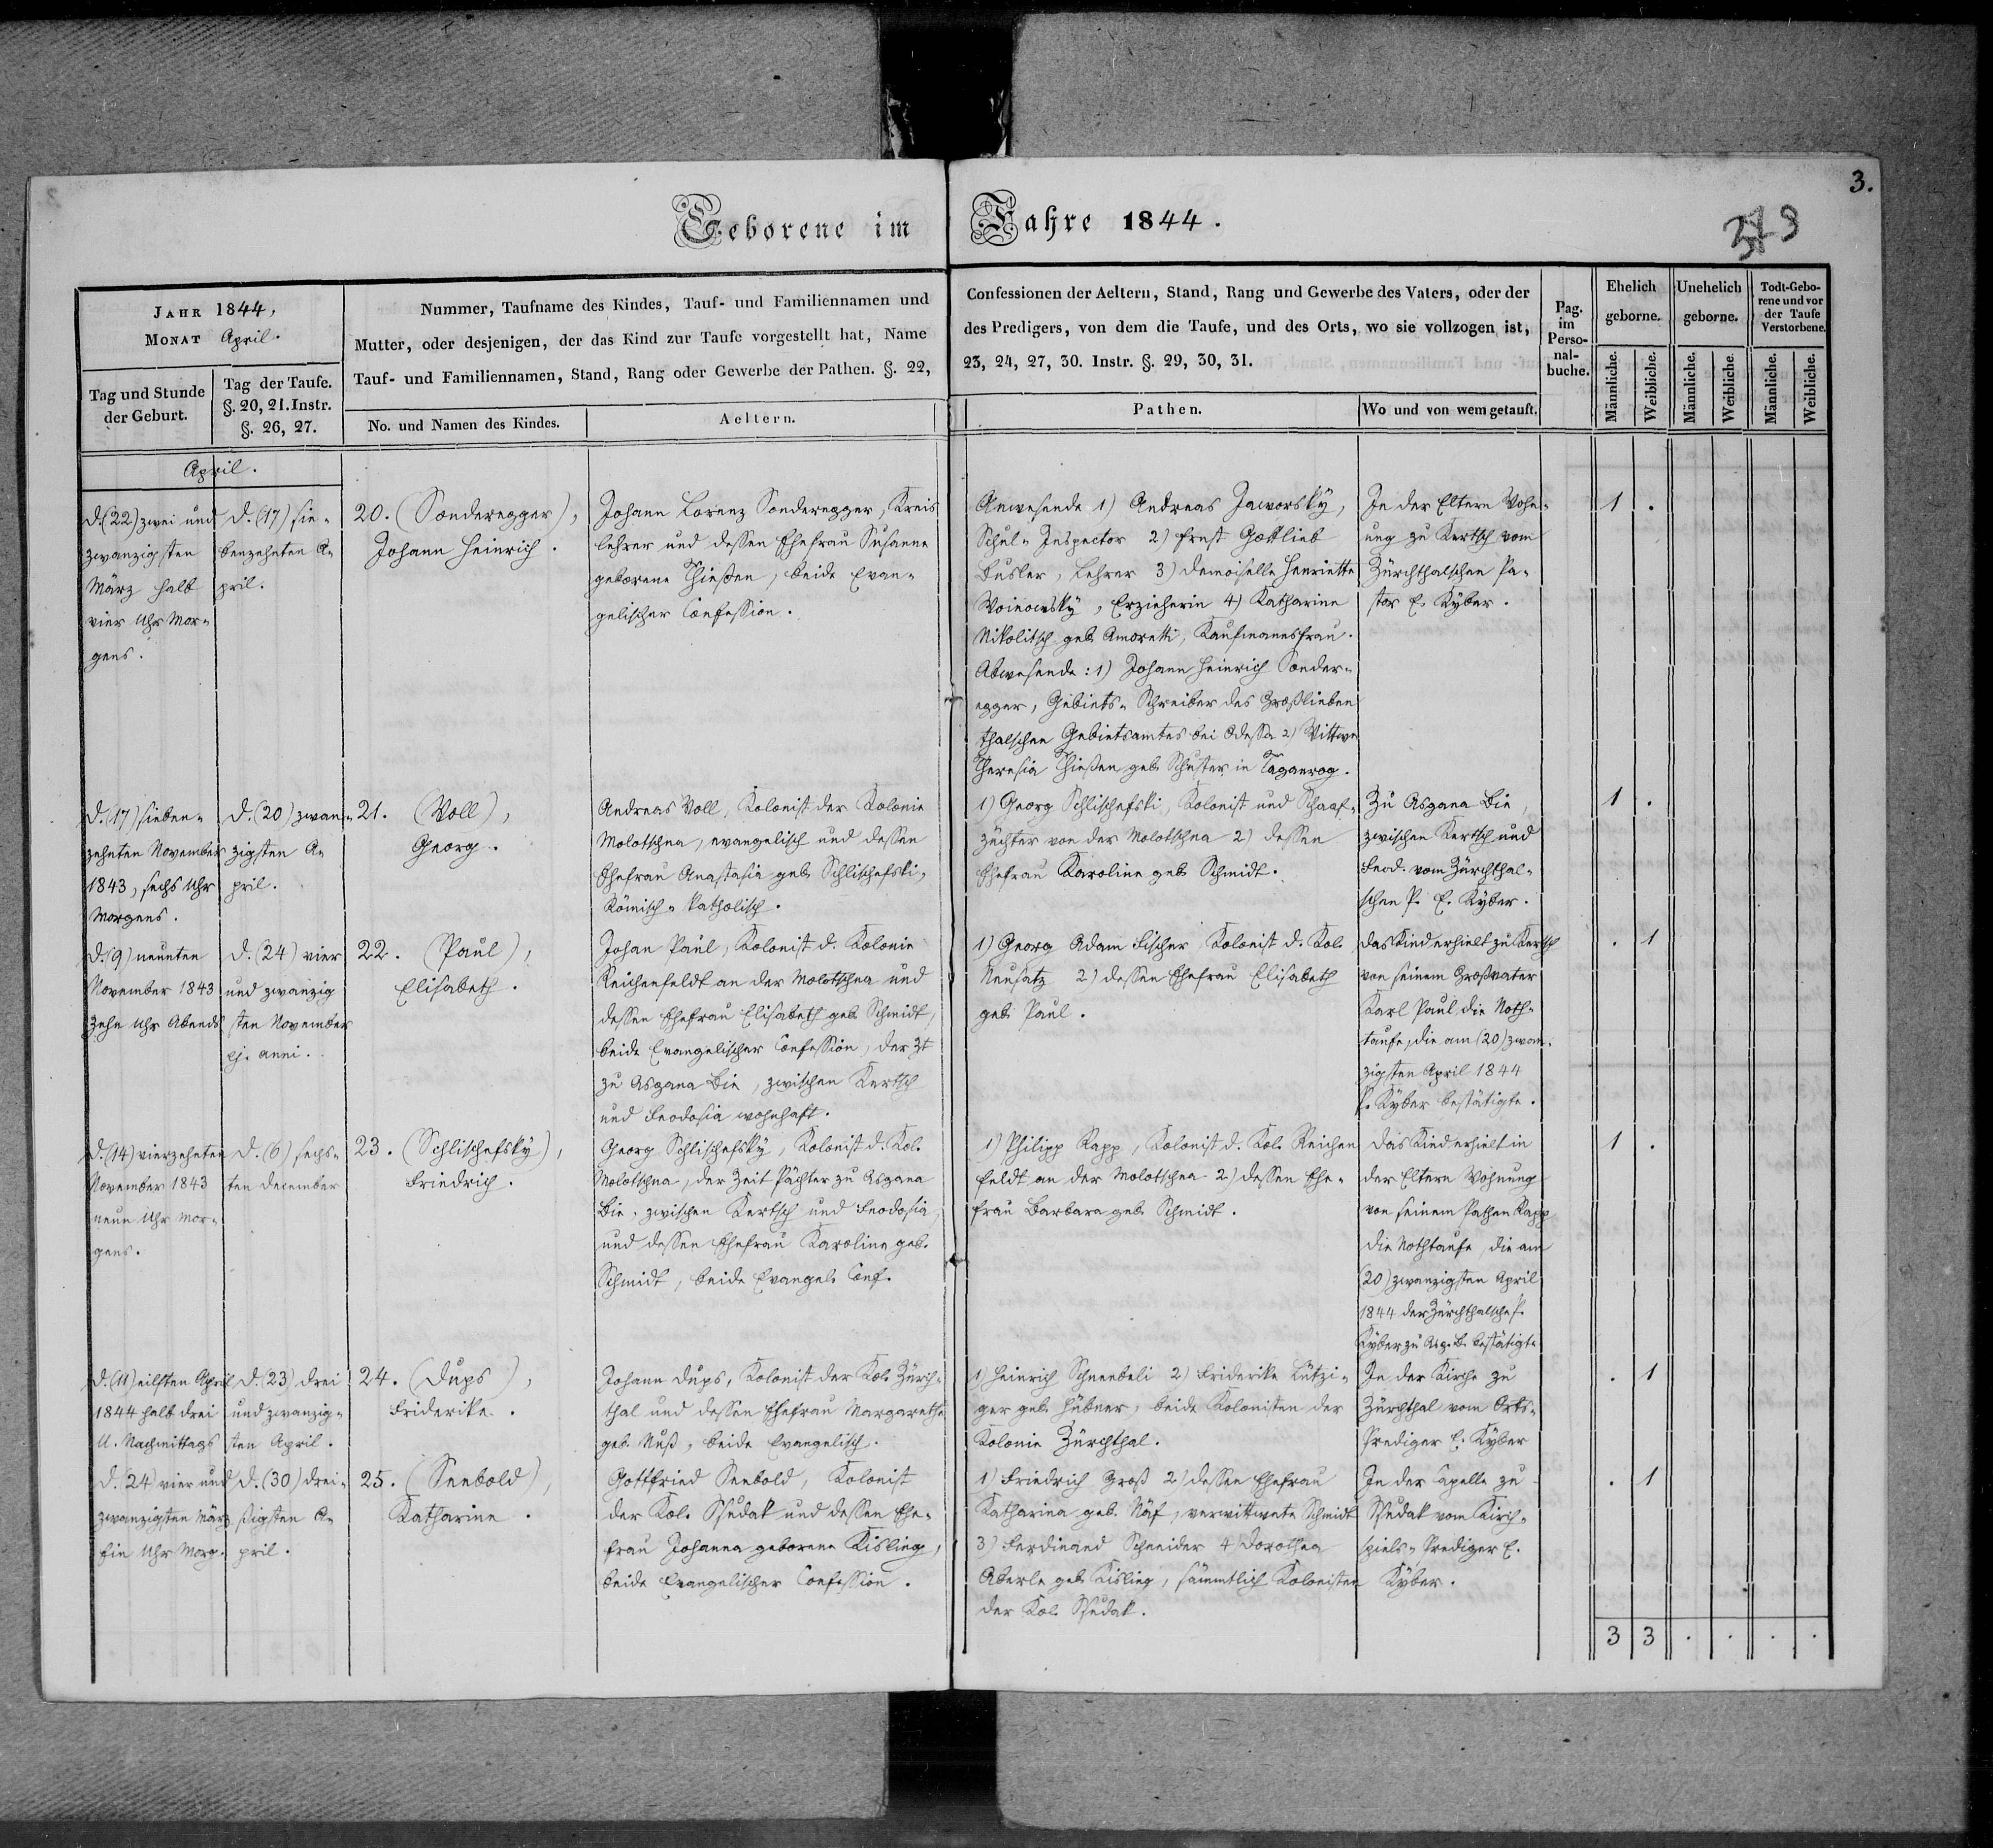 3.
Geborene im Jahre 1844.
373
JAHR 1844,
MONAT April.
Tag und Stunde
der Geburt.
Tag der Taufe.
§. 20, 21. Instr.
§. 26, 27.
Nummer, Taufname des Kindes, Tauf- und Familiennamen und
Mutter, oder desjenigen, der das Kind zur Taufe vorgestellt hat, Name
Tauf- und Familiennamen, Stand, Rang oder Gewerbe der Pathen. §. 22,
No. und Namen des Kindes.
Aeltern.
Confessionen der Aeltern, Stand, Rang und Gewerbe des Vaters, oder der
des Predigers, von dem die Taufe, und des Orts, wo sie vollzogen ist,
23, 24, 27, 30. Instr. §. 29, 30, 31.
Pathen.
Wo und von wem getauft.
Pag.
im
Perso-
nal-
buche.
Ehelich
geborne.
Unehelich
geborne.
Todt-Gebo-
rene und vor
der Taufe
Verstorbene.
Männliche.
Weibliche.
Männliche.
Weibliche.
Männliche.
Weibliche.
April.
d. (22) zwei und
zwanzigsten
März halb
vier Uhr Mor-
gens.
d. (17) sie-
benzehnten A-
pril.
20. (Sonderegger),
Johann Heinrich.
Johann Lorenz Sonderegger, Kreis
lehrer und dessen Ehefrau Susanna
geborene Thießen, beide Evan-
gelischer Confession.
Anwesende 1) Andreas Jaworsky,
Schul-Inspector 2) Ernst Gottlieb
Busler, Lehrer 3) Demoiselle Henriette
Woinowsky, Erzieherin 4) Katharine
Nikolitsch geb. Amoretti, Kaufmannsfrau.
Abwesende: 1) Johann Heinrich Sonder-
egger, Gebiets-Schreiber des Großlieben
thalschen Gebietsamtes bei Odessa 2) Wittwe
Theresia Thießen geb. Schuster in Taganrog.
In der Eltern Wohn-
ung zu Kertsch vom
Zürchthalschen Pa-
stor E. Kyber.
1 .
d. (17) sieben-
zehnten November
1843, sechs Uhr
Morgens.
d. (20) zwan-
zigsten A-
pril.
21. (Voll),
Georg.
Andreas Voll, Kolonist der Kolonie
Molotschna, evangelisch und dessen
Ehefrau Anastasia geb. Schlischefski,
Römisch-katholisch.
1) Georg Schlischefski, Kolonist und Schaaf-
züchter von der Molotschna 2) dessen
Ehefrau Karoline geb. Schmidt.
Zu Asgana Bie,
zwischen Kertsch und
Feod. vom Zürchthal-
schen P. E. Kyber.
1 .
d. (9) neunten
November 1843
zehn Uhr Abends
d. (24) vier
und zwanzig
sten November
ej. anni.
22. (Paul),
Elisabeth.
Johan Paul, Kolonist d. Kolonie
Reichenfeldt an der Molotschna und
dessen Ehefrau Elisabeth geb. Schmidt,
beide Evangelischer Confession, der Zt
zu Asgana Bie, zwischen Kertsch
und Feodosia wohnhaft.
1) Georg Adam Fischer Kolonist d. Kol.
Neusatz 2) dessen Ehefrau Elisabeth
geb. Paul.
Das Kind erhielt zu Kertsch
von seinem Großvater
Karl Paul, die Noth-
taufe, die am (20) zwan-
zigsten April 1844
P. Kyber bestätigte.
. 1
d. (14) vierzehnten
November 1843
neun Uhr Mor-
gens.
d. (6) sechs-
ten December
23. (Schlischefsky),
Friedrich.
Georg Schlischefsky, Kolonist d. Kol.
Molotschna, der Zeit Pächter zu Asgana
Bie, zwischen Kertsch und Feodosia,
und dessen Ehefrau Karoline geb.
Schmidt, beide Evangel. Conf.
1) Philipp Rapp, Kolonist d. Kol. Reichen
feldt an der Molotschna 2) dessen Ehe-
frau Barbara geb. Schmidt.
Das Kind erhielt in
der Eltern Wohnung
von seinem Pathen Rapp
die Nothtaufe, die am
(20) zwanzigsten April
1844 der Zürchthalsche P.
Kyber zu Asg. B. bestätigte
1 .
d. (11) eilften April
1844 halb drei
U. Nachmittags
d. (23) drei
und zwanzig-
sten April.
24. (Dups),
Friderike.
Johann Dups, Kolonist der Kol. Zürch-
thal und dessen Ehefrau Margarethe
geb. Nuß, beide Evangelisch.
1) Heinrich Schneebeli 2) Friderike Lützi-
ger geb. Hübner, beide Kolonisten der
Kolonie Zürchthal.
In der Kirche zu
Zürchthal vom Orts-
Prediger E. Kyber
. 1
d. (24) vier und
zwanzigsten März
Ein Uhr Morg.
d. (30) drei-
ßigsten A-
pril.
25. (Seebold),
Katharine.
Gottfried Seebold, Kolonist
der Kol. Ssudak und dessen Ehe-
frau Johanna geborene Kisling,
beide Evangelischer Confession.
1) Friedrich Groß 2) dessen Ehefrau
Katharina geb. Näf, verwittwete Schmidt
3) Ferdinand Schneider 4) Dorothea
Aberle geb. Kisling, sämmtlich Kolonisten
der Kol. Ssudak.
In der Capelle zu
Ssudak vom Kirch-
spiels-Prediger E.
Kyber.
. 1
3 3 . . . .